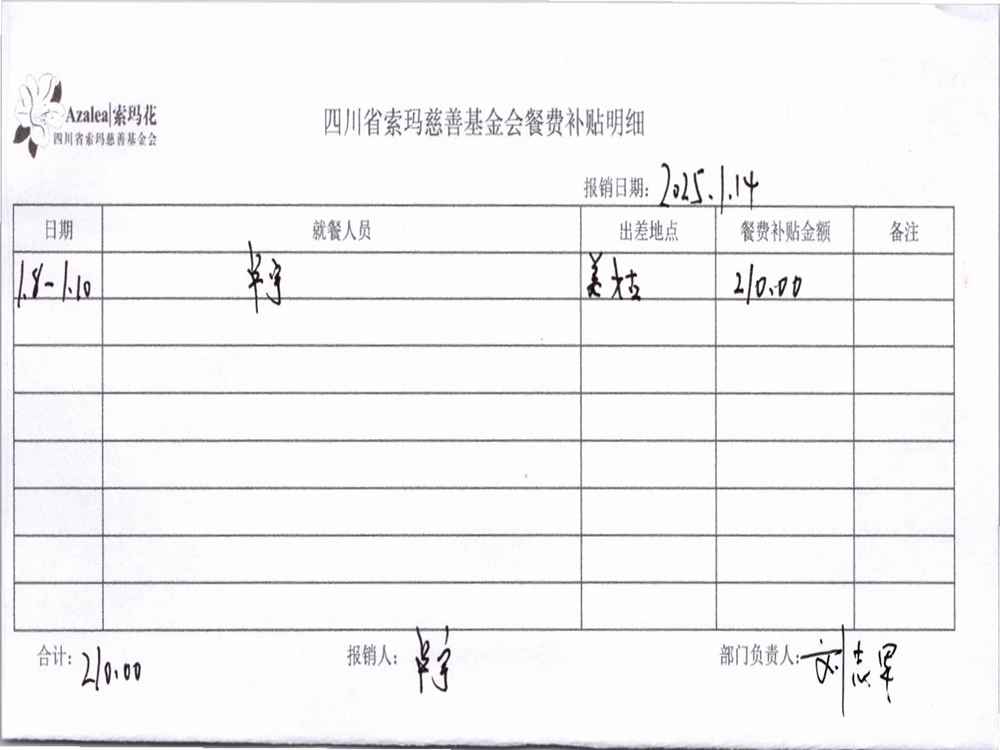 Azalea|索玛花
四川省索玛慈善基金会
四川省索玛慈善基金会餐费补贴明细
报销日期: 2025.1.14
日期 就餐人员 出差地点 餐费补贴金额 备注
1.8-1.10 毕宇 美姑 210.00
合计: 210.00 报销人: 毕宇 部门负责人: 刘志军